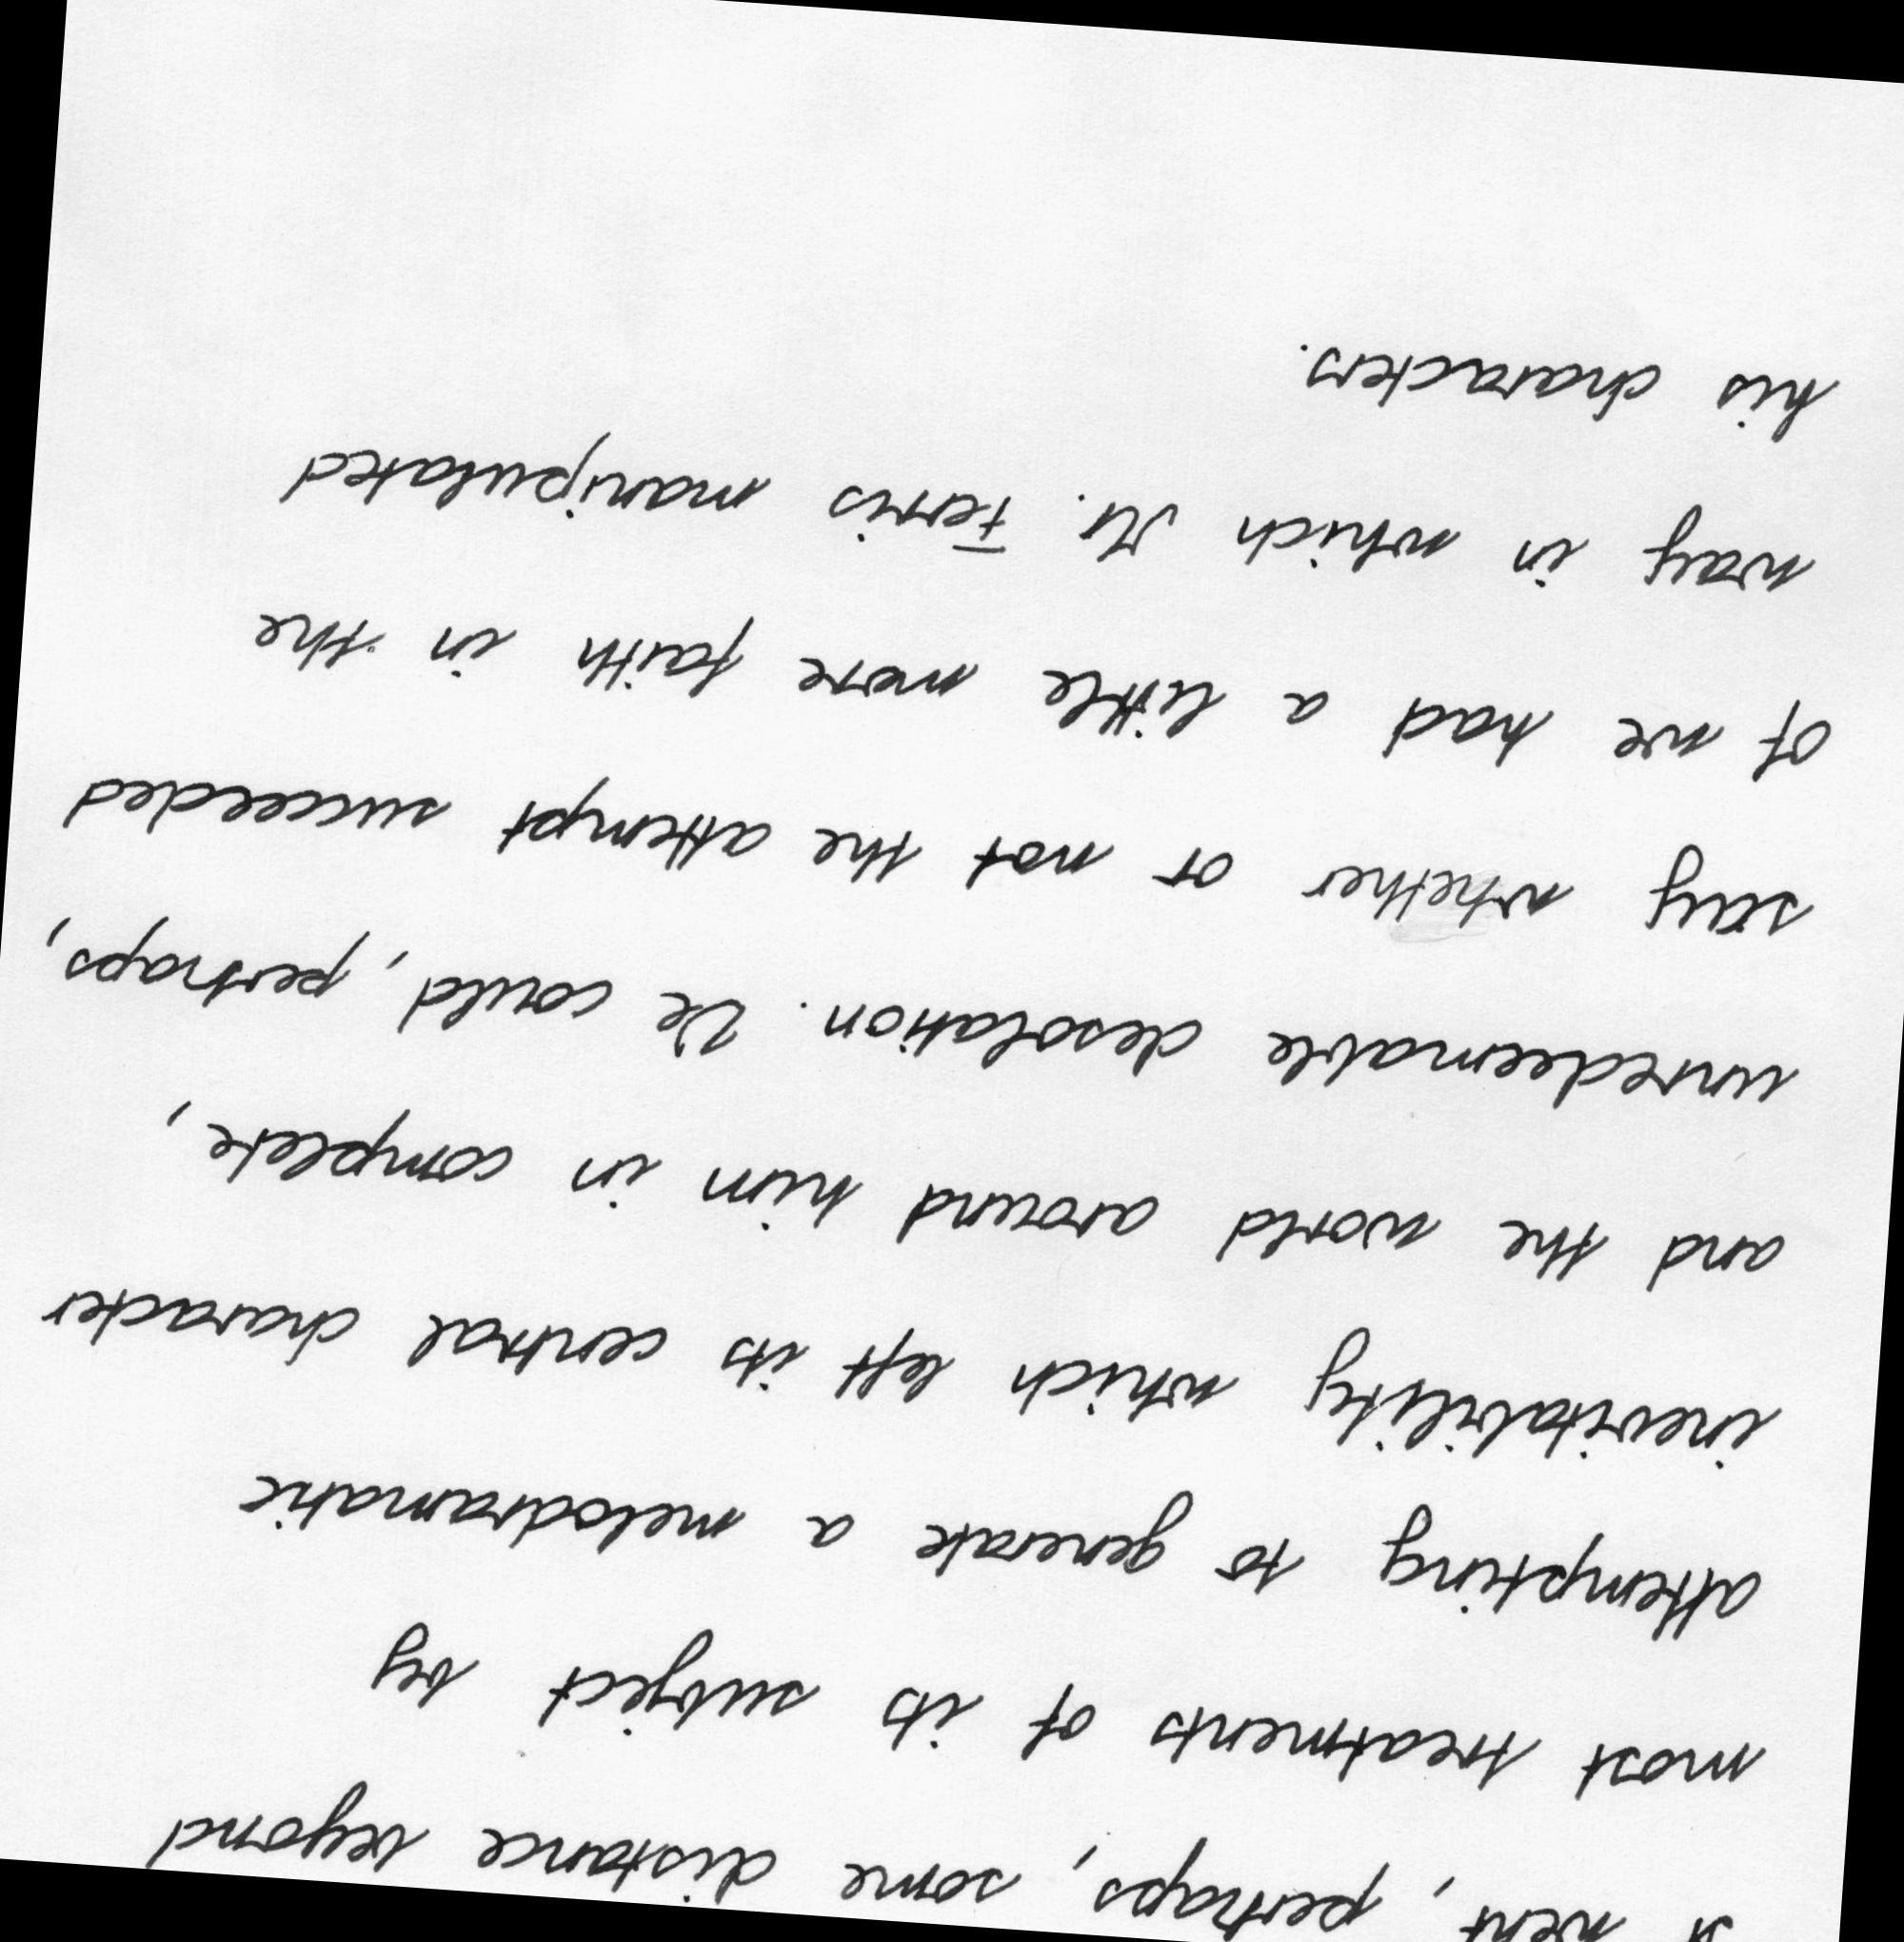 It went, perhaps, some distance beyond
most treatments of its subject by
attempting to generate a melodramatic
inevitability which left its central character
and the world around him in complete,
unredeemable desolation. We could, perhaps,
say whether or not the attempt succeeded
of we had a little more faith in the
way in which Mr. Ferris manipulated
his characters.